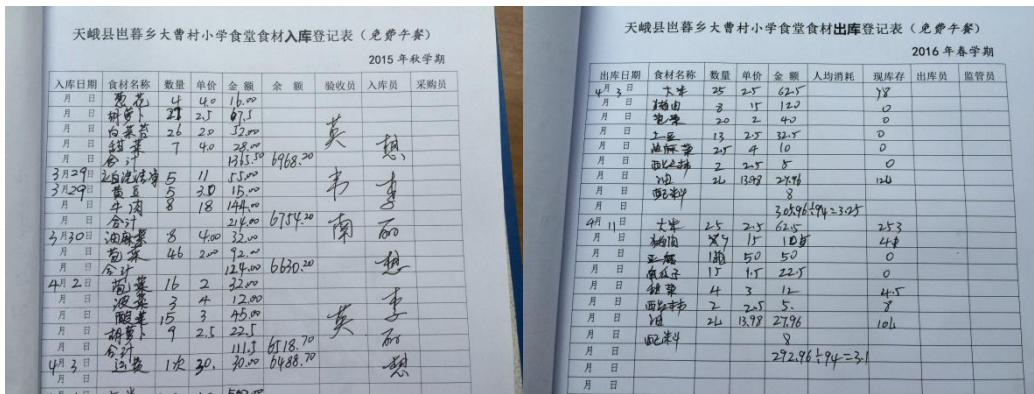 天峨县岜暮乡大曹村小学食堂食材入库登记表（免费午餐）
2015年秋学期
入库日期 食材名称 数量 单价 金额 余额 验收员 入库员 采购员
月 日 葱花 4 4.0 16.00
月 日 胡萝卜 2.5 67.5
月 日 白菜苔 26 2.0 52.00
月 日 甜菜 7 4.0 28.00 英
月 日 合计 1365.50 6968.20 想
3月29日 5 11 55.00
3月29日 黄豆 5 3.0 15.00 韦 李
月 日 牛肉 8 18 144.00
月 日 合计 214.00 6754.20 南 丽
3月30日 油麻菜 8 4.00 32.00
月 日 苞菜 46 2.00 92.00
月 日 合计 124.00 6630.20 想
4月2日 苞菜 16 2 32.00
月 日 菠菜 3 4 12.00 李
月 日 酸菜 15 3 45.00 英
月 日 胡萝卜 9 2.5 22.5 丽
月 日 合计 111.5 6518.70
4月3日 运费 1次 30. 30.00 6488.70 想
月 日
天峨县岜暮乡大曹村小学食堂食材出库登记表（免费午餐）
2016年春学期
出库日期 食材名称 数量 单价 金额 人均消耗 现库存 出库员 监管员
4月3日 大米 25 2.5 62.5 78
月 日 猪肉 8 15 120 0
月 日 苞菜 20 2 40 0
月 日 土豆 13 2.5 32.5 0
月 日 油麻菜 2.5 4 10 0
月 日 2 2.5 5 0
月 日 油 2L 13.98 27.96 12L
月 日 配料 8
月 日 305.96÷94=3.25
4月11日 大米 25 2.5 62.5 253
月 日 猪肉 15
月 日 50 50 0
月 日 15 1.5 22.5 0
月 日 甜菜 4 3 12 4.5
月 日 2 2.5 5. 8
月 日 油 2L 13.98 27.96 10L
月 日 配料 8
月 日 292.96÷94=3.1
月 日
月 日